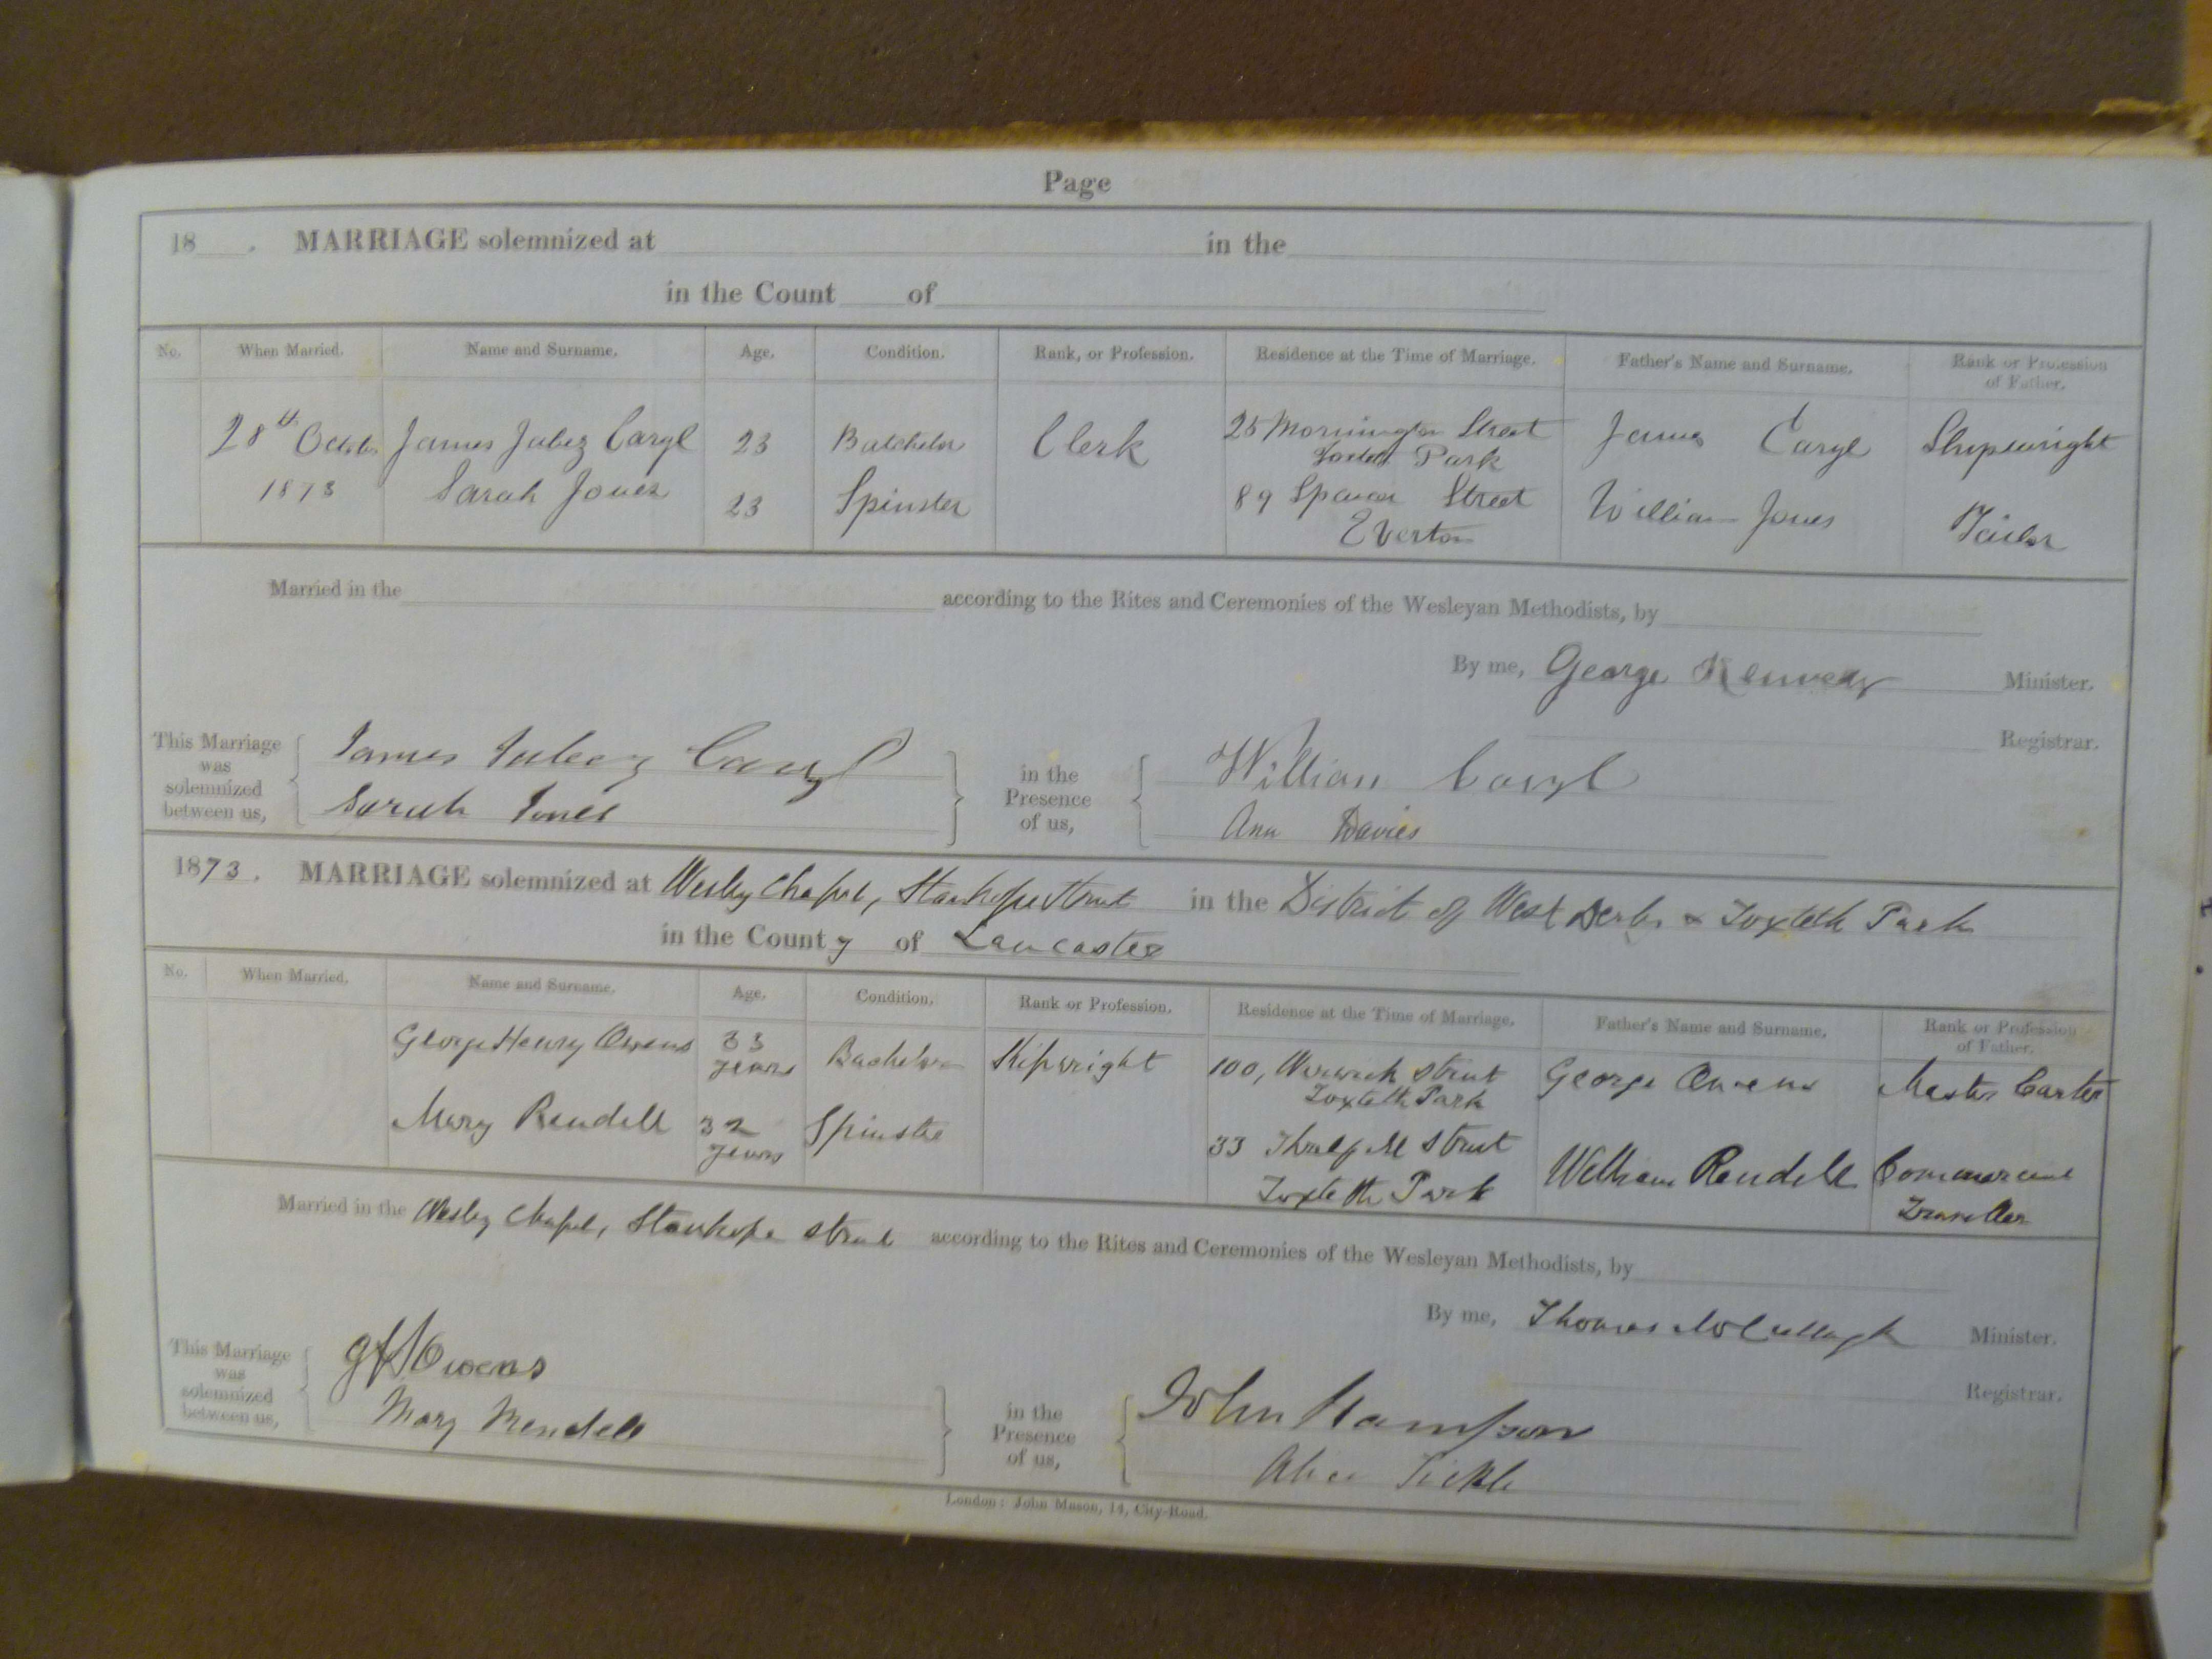 Page
18 . MARRIAGE solemnized at in the
in the Count of
No. When Married. Name and Surname. Age. Condition. Rank, or Profession. Residence at the Time of Marriage. Father's Name and Surname. Rank or Profession of Father.
28th October James Jabez Caryl 23 Batchelor Clerk 25 Mornington Street James Caryl Shipwright
Toxteth Park
1873 Sarah Jones 23 Spinster 89 Spencer Street William Jones Tailor
Everton
Married in the according to the Rites and Ceremonies of the Wesleyan Methodists, by
By me, George Kennedy Minister.
Registrar.
This Marriage was solemnized between us, James Jabez Caryl
Sarah Jones
in the Presence of us, William Caryl
Ann Davies
1873. MARRIAGE solemnized at Wesley Chapel, Stanhope Street in the District of West Derby & Toxteth Park
in the County of Lancaster
No. When Married. Name and Surname. Age. Condition. Rank or Profession. Residence at the Time of Marriage. Father's Name and Surname. Rank or Profession of Father.
George Henry Owens 33 years Bachelor Shipwright 100, Warwick Street George Owens Master Carter
Toxteth Park
Mary Rendell 32 years Spinster 33 Street William Rendell Commercial Traveller
Toxteth Park
Married in the Wesley Chapel, Stanhope Street according to the Rites and Ceremonies of the Wesleyan Methodists, by
By me, Thomas McCullagh Minister.
Registrar.
This Marriage was solemnized between us, G H Owens
Mary Rendell
in the Presence of us, John Hampson
Alice Tickle
London: John Mason, 14, City-Road.